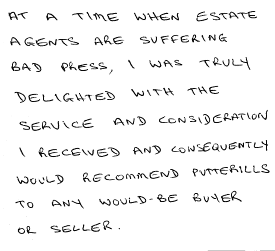 AT A TIME WHEN ESTATE
AGENTS ARE SUFFERING
BAD PRESS, I WAS TRULY
DELIGHTED WITH THE
SERVICE AND CONSIDERATION
I RECEIVED AND CONSEQUENTLY
WOULD RECOMMEND PUTTERILLS
TO ANY WOULD-BE BUYER
OR SELLER.